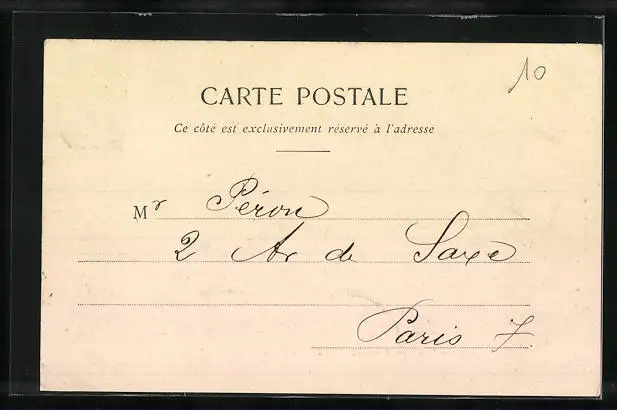 10
CARTE POSTALE
Ce côté est exclusivement réservé à l'adresse
Mr Péron
2 Av de Saxe
Paris 7